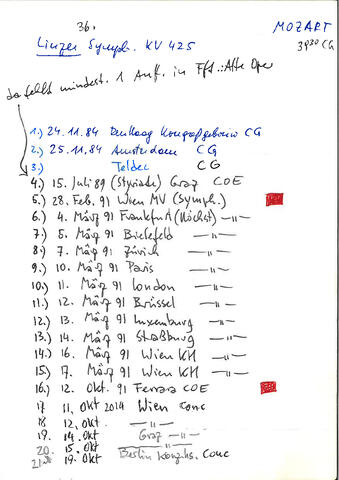 36.
MOZART
Linzer Symph. KV 425
3930 CG
da fehlt mindest. 1 Auff. in Fft.: Alte Oper
1.) 24.11.84 Den Haag Kongreßgebouw CG
2.) 25.11.84 Amsterdam CG
3.) Teldec CG
4.) 15. Juli 89 (Styriade) Graz COE
5.) 28. Feb. 91 Wien MV (Symph.)
6.) 4. März 91 Frankfurt (Höchst) —"—
7.) 5. März 91 Bielefeld —"—
8.) 7. März 91 Zürich —"—
9.) 10. März 91 Paris —"—
10.) 11. März 91 London —"—
11.) 12. März 91 Brüssel —"—
12.) 13. März 91 Luxemburg —"—
13.) 14. März 91 Straßburg —"—
14.) 16. März 91 Wien KH —"—
15.) 17. März 91 Wien KH —"—
16.) 12. Okt. 91 Ferrara COE
17 11. Okt 2014 Wien Conc
18 12. Okt. —"—
19. 14. Okt Graz —"—
20. 15. Okt —"—
21. 19. Okt Berlin Konzhs. Conc